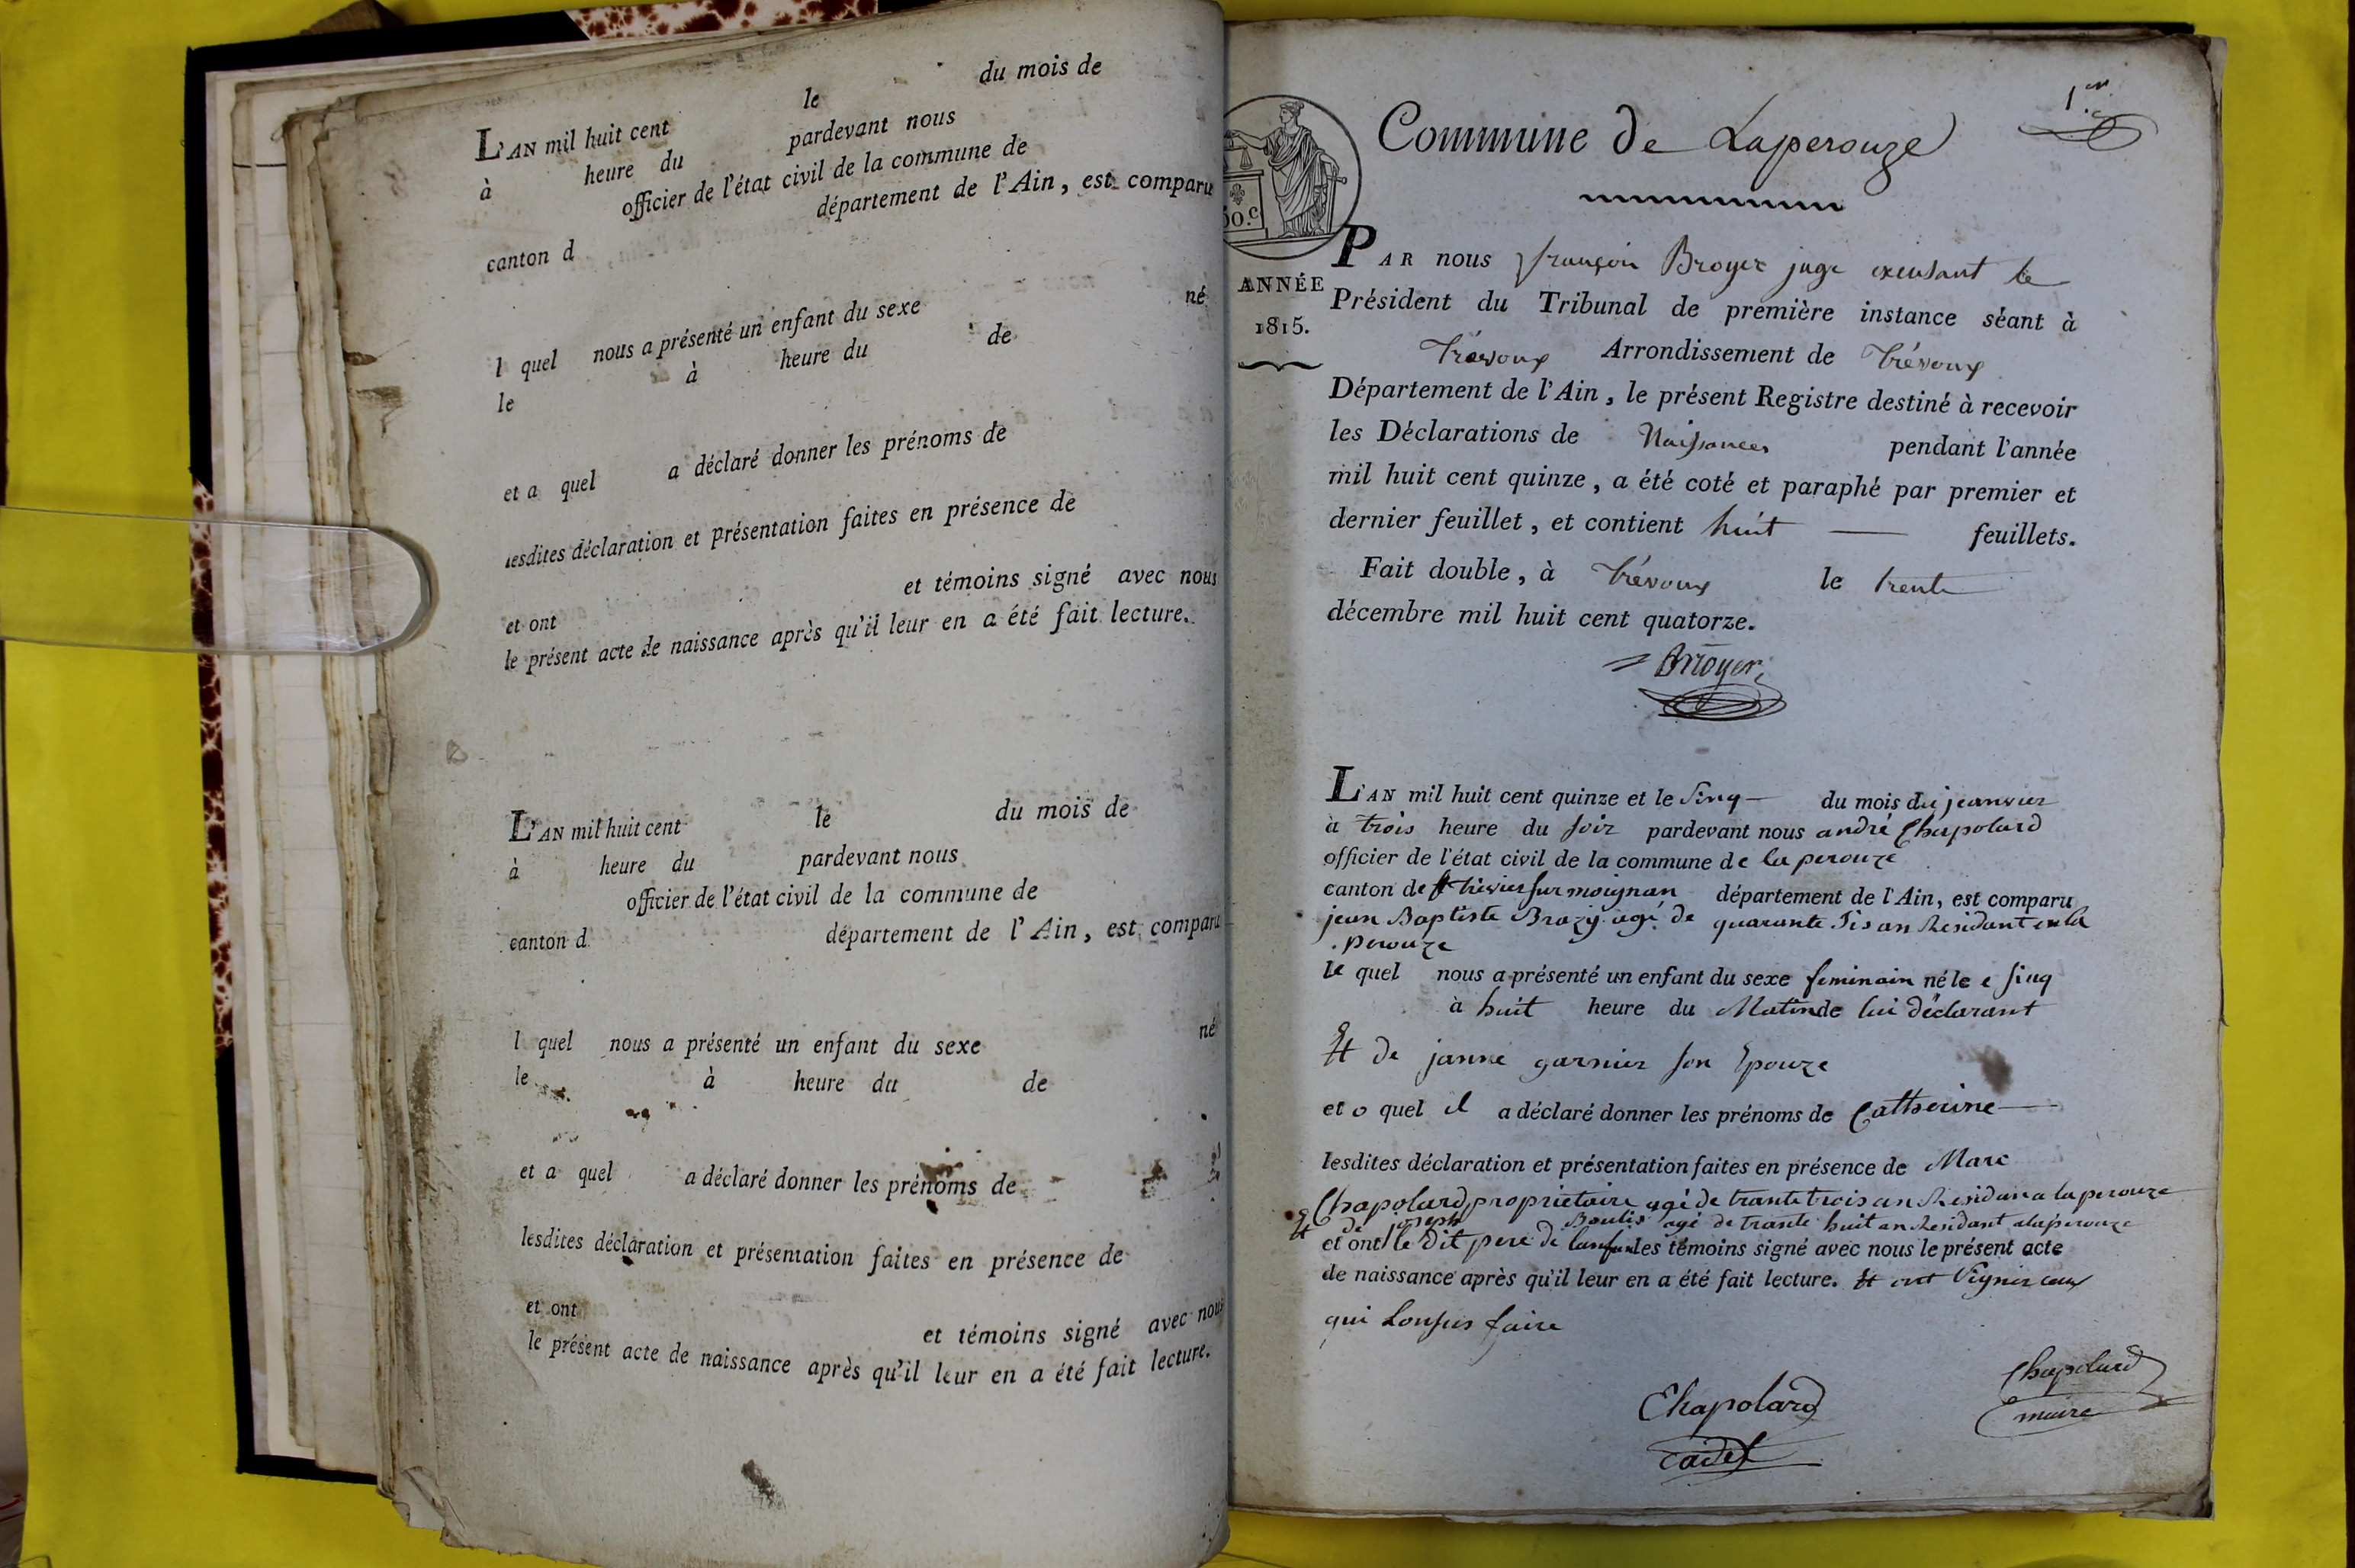 L'AN mil huit cent le du mois de
à heure du pardevant nous
officier de l'état civil de la commune de
canton d département de l'Ain, est comparu
l quel nous a présenté un enfant du sexe né
le à heure du de
et a quel a déclaré donner les prénoms de
lesdites déclaration et présentation faites en présence de
et ont et témoins signé avec nous
le présent acte de naissance après qu'il leur en a été fait lecture.
L'AN mil huit cent le du mois de
à heure du pardevant nous
officier de l'état civil de la commune de
canton d département de l'Ain, est comparu
l quel nous a présenté un enfant du sexe né
le à heure du de
et a quel a déclaré donner les prénoms de
lesdites déclaration et présentation faites en présence de
et ont et témoins signé avec nous
le présent acte de naissance après qu'il leur en a été fait lecture.
1er
Commune de Laperouze
50.c
ANNÉE
1815.
PAR nous françois Broyer juge exersant le
Président du Tribunal de première instance séant à
Trévoux Arrondissement de Trévoux
Département de l'Ain, le présent Registre destiné à recevoir
les Déclarations de Naissances pendant l'année
mil huit cent quinze, a été coté et paraphé par premier et
dernier feuillet, et contient huit feuillets.
Fait double, à Trévoux le trente
décembre mil huit cent quatorze.
Broyer
L'AN mil huit cent quinze et le sinq du mois du jeanvier
à trois heure du soir pardevant nous andré Chapolard
officier de l'état civil de la commune de la perouze
canton de st trivier sur moignan département de l'Ain, est comparu
jean Baptiste Brazy agé de quarante sis an Residant en la
perouze
le quel nous a présenté un enfant du sexe feminain né le sinq
à huit heure du Matin de lui déclarant
Et de janne garnier son Epouze
et o quel il a déclaré donner les prénoms de Catherine
lesdites déclaration et présentation faites en présence de Marc
Chapolard proprietaire agé de trante trois an Residan a la perouze
Et de joseph Boulis agé de trante huit an Residant a la perouze
et ont le dit pere de lanfan les témoins signé avec nous le présent acte
de naissance après qu'il leur en a été fait lecture. Et ont signer ceux
qui Lonsus faire
Chapolard
maire
Chapolard
cadet